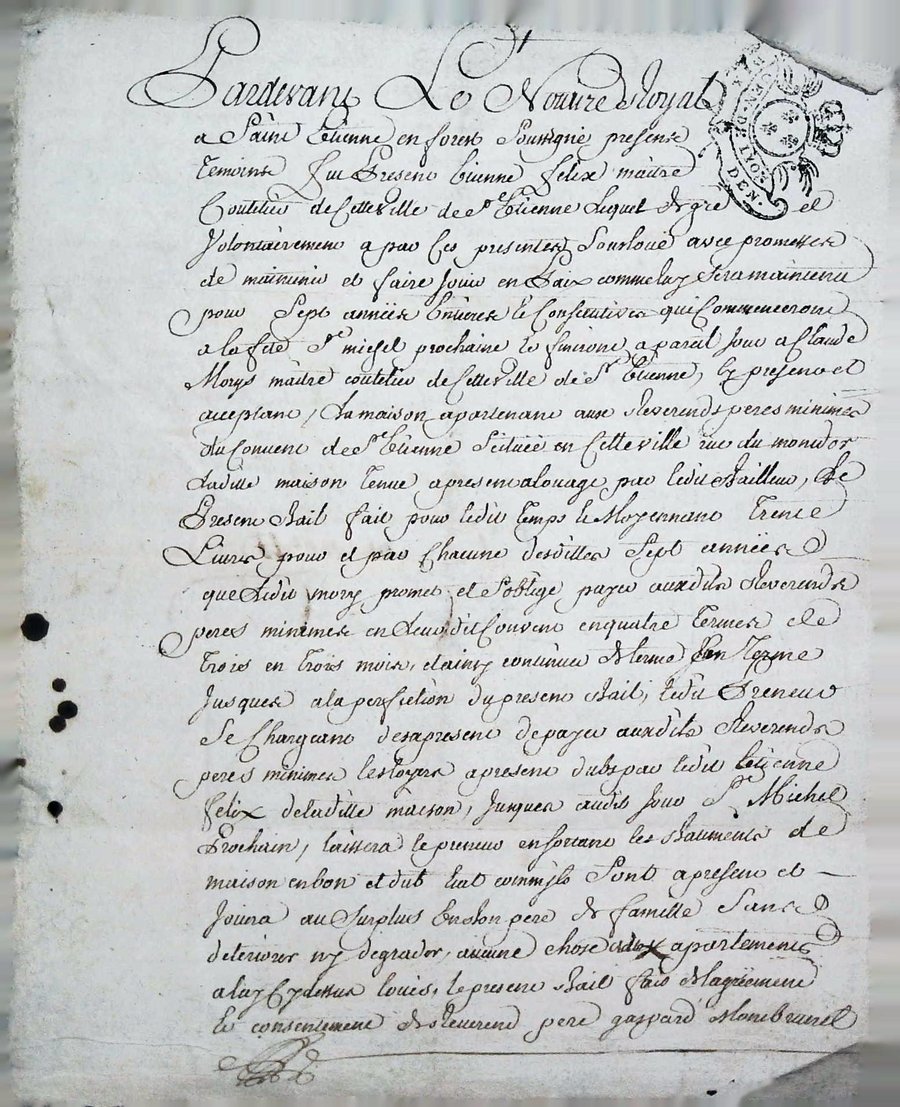 Pardevant Le Notaire Royal
GEN. DE LYON
DEN.
a Saint Etienne en forest Soussigné presents
temoins fut Present Etienne felix maitre
Coutelier de Cette ville de St Etienne Lequel de gré et
Volontairement a par Ces presentes Sousloué avec promesses
de maintenir et faire Jouir en Paix comme luy Sera maintenu
pour Sept années Entieres & Consecutives qui Commenceront
a la fete St michel prochaine & finiront a pareil Jour a Claude
Mory maitre coutelier de Cette ville de St Etienne, Cy present et
acceptant, La maison apartenant aux Reverends peres minimes
du Couvent de St Etienne Scituée en Cette ville rue du
Laditte maison tenue apresent a louage par ledit Bailleur, Le
Present Bail fait pour ledit temps & Moyennant trente
Livres pour et par Chacune desdittes Sept années
que Ledit mory promet et S'oblige payer auxdits Reverends
peres minimes en Leur dit Couvent en quatre termes & de
trois en trois mois, et ainsy continuer de terme En terme
Jusques a la perfection du present Bail, ledit Preneur
Se Chargeant des apresent de payer auxdits Reverends
peres minimes les loyers apresent dubs par ledit Etienne
felix de laditte maison, Jusques audit Jour St Michel
Prochain, laissera le preneur en sortant les Batiments de
maison en bon et dub Etat comm'ils Sont apresent et
Jouira au Surplus En bon pere de famille Sans
deteriorer ny degrader, aucune chose apartements
a luy Cy dessus loués, le present Bail fait de l'agreement
& consentement du Reverend pere gaspard Montbrunel